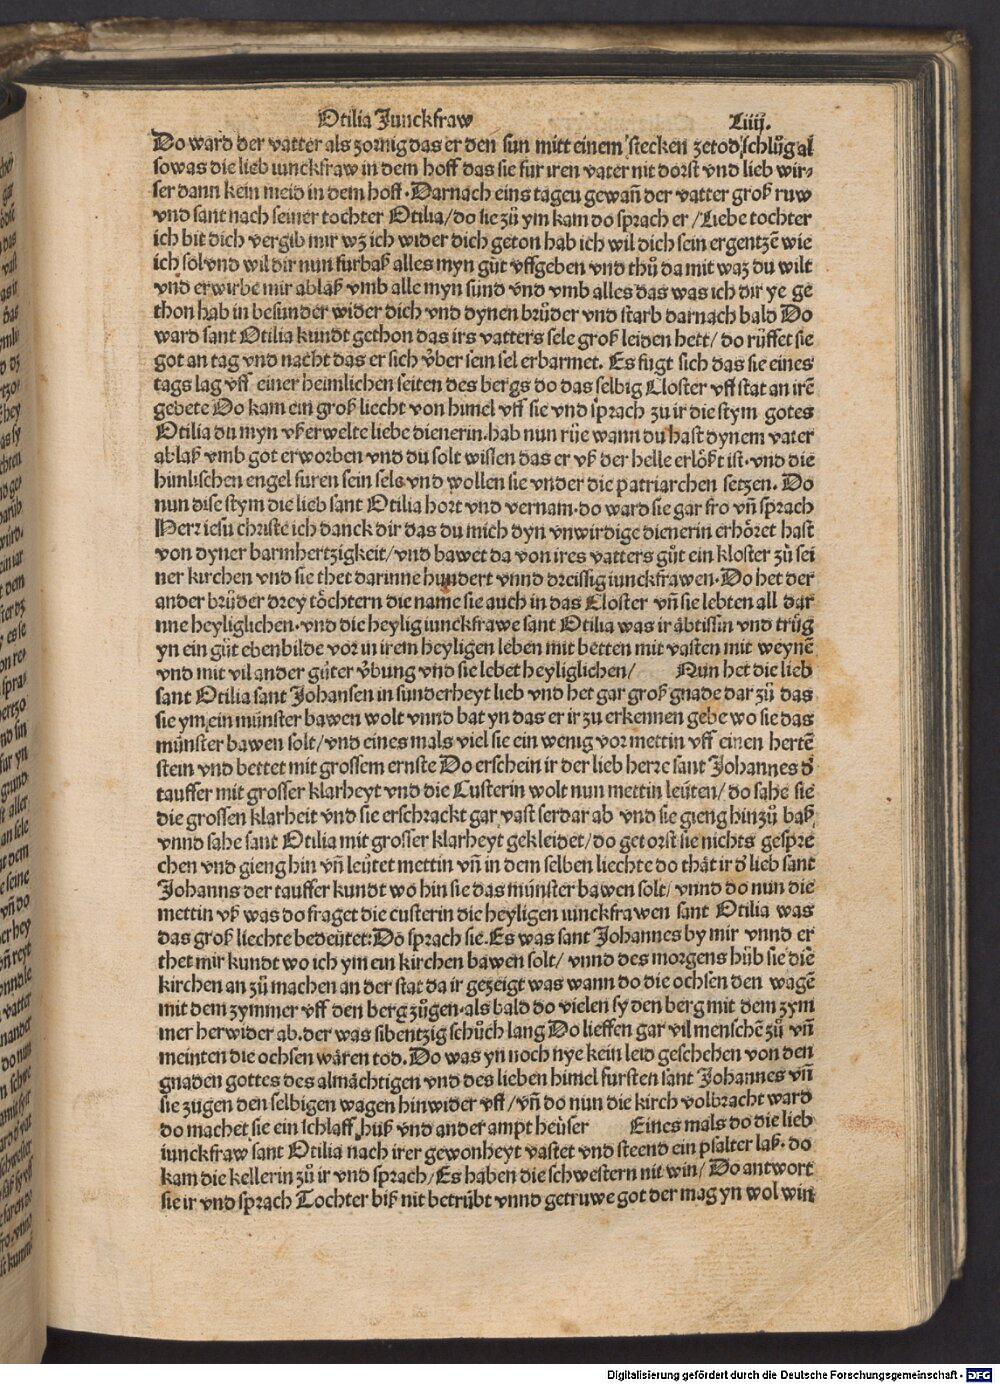 Otilia Junckfraw Liiij.
Do ward der vatter als zornig das er den sun mitt einem stecken zetod schlůg al
so was die lieb iunckfraw in dem hoff das sie fur iren vater nit dorst vnd lieb wir⸗
ser dann kein meid in dem hoff. Darnach eins tages gewañ der vatter groß ruw
vnd sant nach seiner tochter Otilia/ do sie zů ym kam do sprach er/ Liebe tochter
ich bit dich vergib mir wz ich wider dich geton hab ich wil dich sein ergentzē wie
ich sol vnd wil dir nun furbaß alles myn gůt vffgeben vnd thů da mit waz du wilt
vnd erwirbe mir ablaß vmb alle myn sund vnd vmb alles das was ich dir ye ge
thon hab in besunder wider dich vnd dynen brůder vnd starb darnach bald Do
ward sant Otilia kundt gethon das irs vatters sele groß leiden hett/ do růffet sie
got an tag vnd nacht das er sich vber sein sel erbarmet. Es fugt sich das sie eines
tags lag vff einer heimlichen seiten des bergs do das selbig Closter vff stat an irē
gebete Do kam ein groß liecht von himel vff sie vnd sprach zu ir die stym gotes
Otilia du myn vßerwelte liebe dienerin. hab nun růe wann du hast dynem vater
ablaß vmb got erworben vnd du solt wissen das er vß der helle erlößt ist. vnd die
himlischen engel furen sein sels vnd wollen sie vnder die patriarchen setzen. Do
nun dise stym die lieb sant Otilia hort vnd vernam. do ward sie gar fro vñ sprach
Herr iesu christe ich danck dir das du mich dyn vnwirdige dienerin erhöret hast
von dyner barmhertzigkeit/ vnd bawet da von ires vatters gůt ein kloster zů sei
ner kirchen vnd sie thet darinne hundert vnnd dreissig iunckfrawen. Do het der
ander brůder drey töchtern die name sie auch in das Closter vñ sie lebten all dar
nne heyliglichen. vnd die heylig iunckfrawe sant Otilia was ir äbtissin vnd trůg
yn ein gůt ebenbilde vor in irem heyligen leben mit betten mit vasten mit weynē
vnd mit vil ander gůter vbung vnd sie lebet heyliglichen/ Nun het die lieb
sant Otilia sant Johansen in sunderheyt lieb vnd het gar groß gnade dar zů das
sie ym ein münster bawen wolt vnnd bat yn das er ir zu erkennen gebe wo sie das
münster bawen solt/ vnd eines mals viel sie ein wenig vor mettin vff einen hertē
stein vnd bettet mit grossem ernste Do erschein ir der lieb herre sant Johannes d̕
tauffer mit grosser klarheyt vnd die Custerin wolt nun mettin leüten/ do sahe sie
die grossen klarheit vnd sie erschrackt gar vast ser dar ab vnd sie gieng hinzů baß
vnnd sahe sant Otilia mit grosser klarheyt gekleidet/ do getorst sie nichts gespre
chen vnd gieng hin vñ leütet mettin vñ in dem selben liechte do thät ir d̕ lieb sant
Johanns der tauffer kundt wo hin sie das münster bawen solt/ vnnd do nun die
mettin vß was do fraget die custerin die heyligen iunckfrawen sant Otilia was
das groß liechte bedeütet: Do sprach sie. Es was sant Johannes by mir vnnd er
thet mir kundt wo ich ym ein kirchen bawen solt/ vnnd des morgens hůb sie die
kirchen an zů machen an der stat da ir gezeigt was wann do die ochsen den wagē
mit dem zymmer vff den berg zůgen. als bald do vielen sy den berg mit dem zym
mer herwider ab. der was sibentzig schůch lang Do lieffen gar vil menschē zů vñ
meinten die ochsen wären tod. Do was yn noch nye kein leid geschehen von den
gnaden gottes des almächtigen vnd des lieben himel fursten sant Johannes vñ
sie zugen den selbigen wagen hinwider vff/ vñ do nun die kirch volbracht ward
do machet sie ein schlaff huß vnd ander ampt heüser Eines mals do die lieb
iunckfraw sant Otilia nach irer gewonheyt vastet vnd steend ein psalter laß. do
kam die kellerin zů ir vnd sprach/ Es haben die schwestern nit win/ Do antwort
sie ir vnd sprach Tochter biß nit betrübt vnnd getruwe got der mag yn wol win
Digitalisierung gefördert durch die Deutsche Forschungsgemeinschaft - DFG